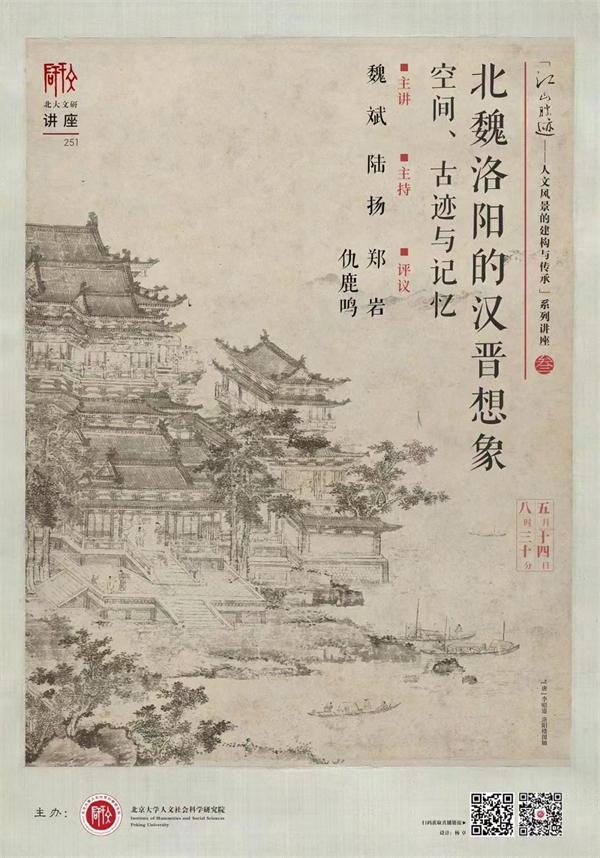 「江山胜迹——人文风景的建构与传承」系列讲座
叁
北魏洛阳的汉晋想象
空间、古迹与记忆
■主讲
魏斌
■主持
陆扬
■评议
郑岩
仇鹿鸣
北大文研
讲座
251
五月十四日
八时三十分
主办：
北京大学人文社会科学研究院
Institute of Humanities and Social Sciences
Peking University
设计：杨卓